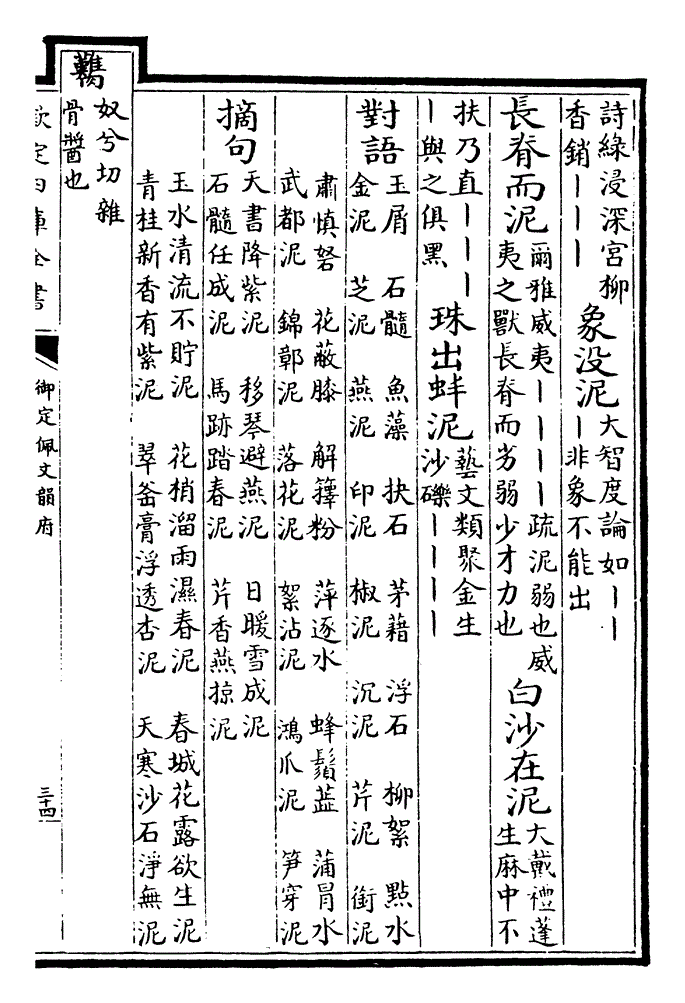 詩綠浸深宮柳
香銷丨丨丨
象没泥
大智度論如丨丨
丨非象不能出
長脊而泥
爾雅威夷丨丨丨丨疏泥弱也威
夷之獸長脊而劣弱少才力也
白沙在泥
大戴禮蓬
生麻中不
扶乃直丨丨丨
丨與之俱黑
珠出蚌泥
藝文類聚金生
沙礫丨丨丨丨
對語
玉屑 石髓 魚藻 抉石 茅藉 浮石 柳絮 點水
金泥 芝泥 燕泥 印泥 椒泥 沉泥 芹泥 銜泥
肅慎砮 花蔽膝 解籜粉 萍逐水 蜂鬚蘂 蒲冐水
武都泥 錦鄣泥 落花泥 絮沾泥 鴻爪泥 笋穿泥
摘句
天書降紫泥 移琴避燕泥 日暖雪成泥
石髓任成泥 馬跡踏春泥 芹香燕掠泥
玉水清流不貯泥 花梢溜雨濕春泥 春城花露欲生泥
青桂新香有紫泥 翠釜膏浮透杏泥 天寒沙石淨無泥
臡
奴兮切雜
骨醬也
欽定四庫全書
御定佩文韻府
三十四